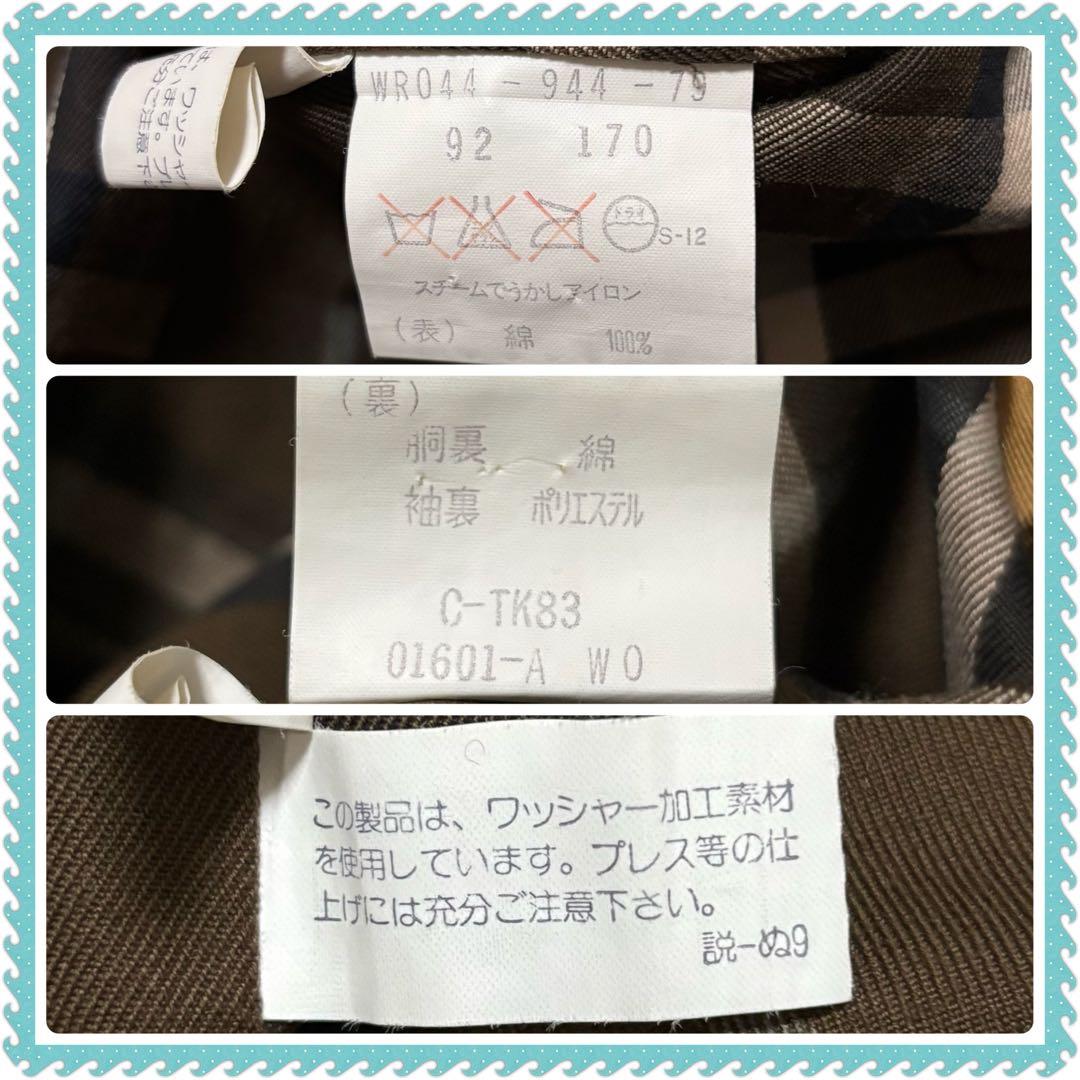 ワッシャ
います。プ
ご注意下
WR044-944-79
92 170
ドライ
S-12
スチームでうかしアイロン
(表) 綿 100%
(裏)
胴裏 綿
袖裏 ポリエステル
C-TK83
01601-A WO
この製品は、ワッシャー加工素材
を使用しています。プレス等の仕
上げには充分ご注意下さい。
説-ぬ9